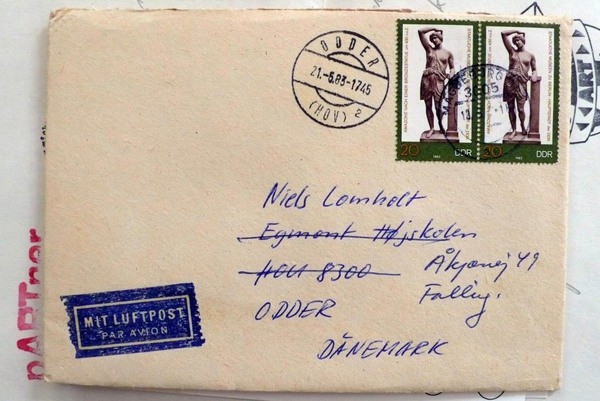 ODDER
21.-5.83-1745
(HOV) 2
MAGDEBURG
20
DDR
20
DDR
ART
Niels Lomholt
Egmont Højskolen
HOU 8300
Åkjærvej 49
Falling.
ODDER
DÄNEMARK
MIT LUFTPOST
PAR AVION
pARTner